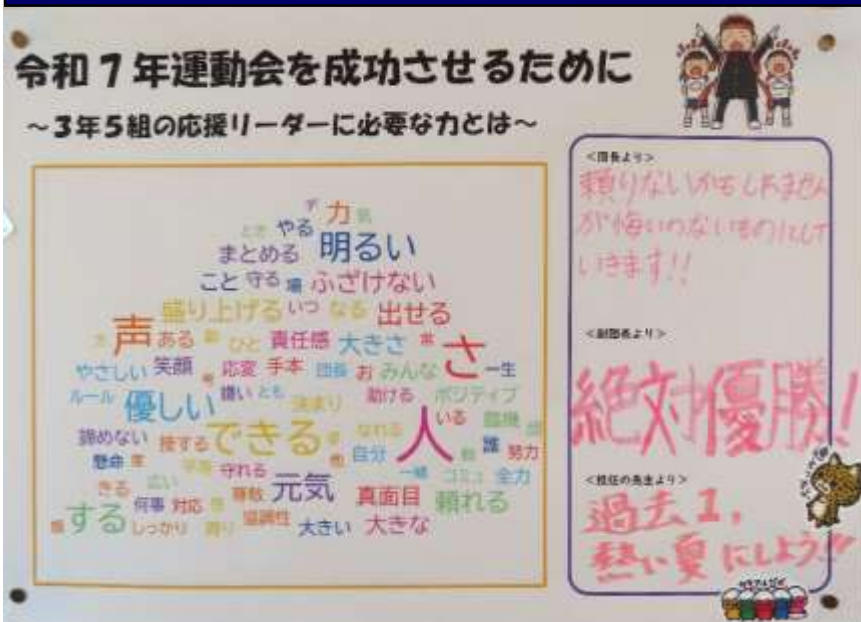 令和7年運動会を成功させるために
～3年5組の応援リーダーに必要な力とは～
力
やる
まとめる 明るい
こと 守る 場 ふざけない
盛り上げる いつ なる 出せる
声 ある ひと 責任感 大きさ 常 さ
やさしい 笑顔 応変 手本 団長 お みんな 一生
ルール 優しい 嫌い とも 決まり 助ける ポジティブ
諦めない 接する できる 他 自分 なれる 人 いる 臨機
懸命 守れる 誰 努力
きる 広い 尊敬 元気 一緒 コミュ 全力
何事 対応 真面目 頼れる
する しっかり 周り 協調性 大きい 大きな
<団長より>
頼りないかもしれません
が悔いのないものにして
いきます!!
<副団長より>
絶対優勝!
<担任の先生より>
過去1,
熱い夏にしよう!!